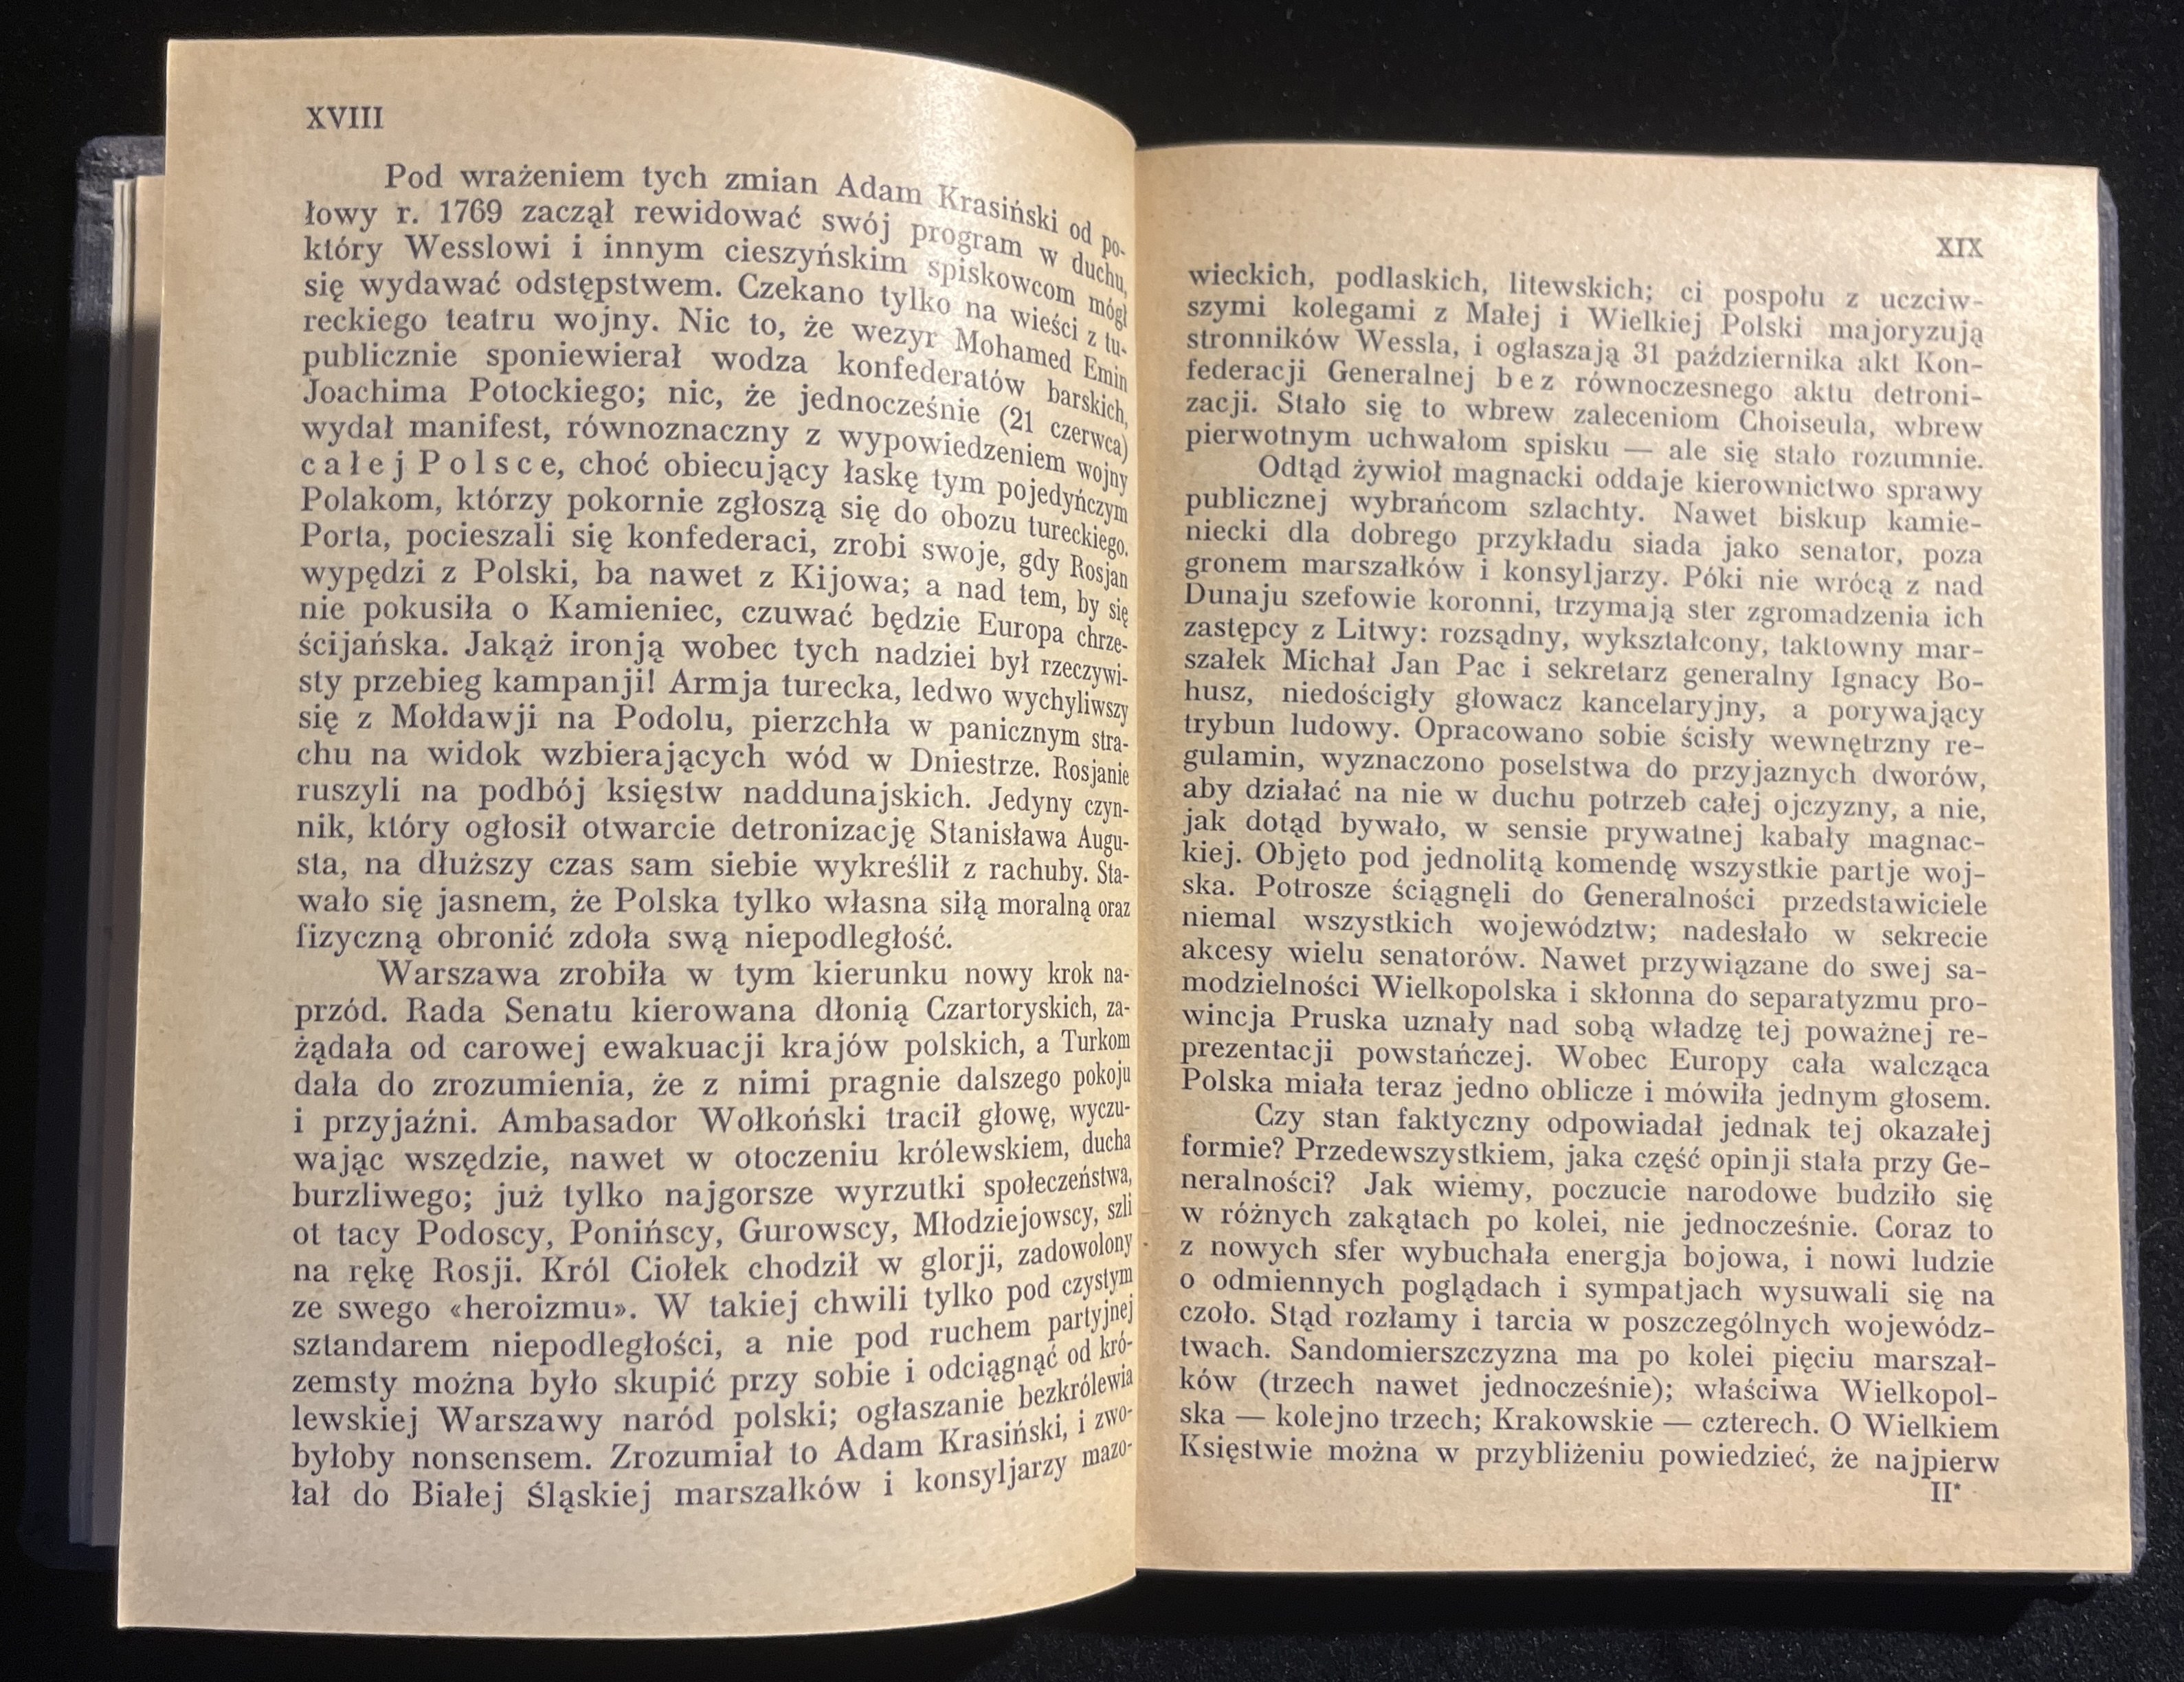 XVIII
Pod wrażeniem tych zmian Adam Krasiński od po-
łowy r. 1769 zaczął rewidować swój program w duchu,
który Wesslowi i innym cieszyńskim spiskowcom mógł
się wydawać odstępstwem. Czekano tylko na wieści z tu-
reckiego teatru wojny. Nic to, że wezyr Mohamed Emin
publicznie sponiewierał wodza konfederatów barskich,
Joachima Potockiego; nic, że jednocześnie (21 czerwca)
wydał manifest, równoznaczny z wypowiedzeniem wojny
c a ł e j P o l s c e, choć obiecujący łaskę tym pojedyńczym
Polakom, którzy pokornie zgłoszą się do obozu tureckiego.
Porta, pocieszali się konfederaci, zrobi swoje, gdy Rosjan
wypędzi z Polski, ba nawet z Kijowa; a nad tem, by się
nie pokusiła o Kamieniec, czuwać będzie Europa chrze-
ścijańska. Jakąż ironją wobec tych nadziei był rzeczywi-
sty przebieg kampanji! Armja turecka, ledwo wychyliwszy
się z Mołdawji na Podolu, pierzchła w panicznym stra-
chu na widok wzbierających wód w Dniestrze. Rosjanie
ruszyli na podbój księstw naddunajskich. Jedyny czyn-
nik, który ogłosił otwarcie detronizację Stanisława Augu-
sta, na dłuższy czas sam siebie wykreślił z rachuby. Sta-
wało się jasnem, że Polska tylko własna siłą moralną oraz
fizyczną obronić zdoła swą niepodległość.
Warszawa zrobiła w tym kierunku nowy krok na-
przód. Rada Senatu kierowana dłonią Czartoryskich, za-
żądała od carowej ewakuacji krajów polskich, a Turkom
dała do zrozumienia, że z nimi pragnie dalszego pokoju
i przyjaźni. Ambasador Wołkoński tracił głowę, wyczu-
wając wszędzie, nawet w otoczeniu królewskiem, ducha
burzliwego; już tylko najgorsze wyrzutki społeczeństwa,
ot tacy Podoscy, Ponińscy, Gurowscy, Młodziejowscy, szli
na rękę Rosji. Król Ciołek chodził w glorji, zadowolony
ze swego «heroizmu». W takiej chwili tylko pod czystym
sztandarem niepodległości, a nie pod ruchem partyjnej
zemsty można było skupić przy sobie i odciągnąć od kró-
lewskiej Warszawy naród polski; ogłaszanie bezkrólewia
byłoby nonsensem. Zrozumiał to Adam Krasiński, i zwo-
łał do Białej Śląskiej marszałków i konsyljarzy mazo-
XIX
wieckich, podlaskich, litewskich; ci pospołu z uczciw-
szymi kolegami z Małej i Wielkiej Polski majoryzują
stronników Wessla, i ogłaszają 31 października akt Kon-
federacji Generalnej b e z równoczesnego aktu detroni-
zacji. Stało się to wbrew zaleceniom Choiseula, wbrew
pierwotnym uchwałom spisku — ale się stało rozumnie.
Odtąd żywioł magnacki oddaje kierownictwo sprawy
publicznej wybrańcom szlachty. Nawet biskup kamie-
niecki dla dobrego przykładu siada jako senator, poza
gronem marszałków i konsyljarzy. Póki nie wrócą z nad
Dunaju szefowie koronni, trzymają ster zgromadzenia ich
zastępcy z Litwy: rozsądny, wykształcony, taktowny mar-
szałek Michał Jan Pac i sekretarz generalny Ignacy Bo-
husz, niedościgły głowacz kancelaryjny, a porywający
trybun ludowy. Opracowano sobie ścisły wewnętrzny re-
gulamin, wyznaczono poselstwa do przyjaznych dworów,
aby działać na nie w duchu potrzeb całej ojczyzny, a nie,
jak dotąd bywało, w sensie prywatnej kabały magnac-
kiej. Objęto pod jednolitą komendę wszystkie partje woj-
ska. Potrosze ściągnęli do Generalności przedstawiciele
niemal wszystkich województw; nadesłało w sekrecie
akcesy wielu senatorów. Nawet przywiązane do swej sa-
modzielności Wielkopolska i skłonna do separatyzmu pro-
wincja Pruska uznały nad sobą władzę tej poważnej re-
prezentacji powstańczej. Wobec Europy cała walcząca
Polska miała teraz jedno oblicze i mówiła jednym głosem.
Czy stan faktyczny odpowiadał jednak tej okazałej
formie? Przedewszystkiem, jaka część opinji stała przy Ge-
neralności? Jak wiemy, poczucie narodowe budziło się
w różnych zakątach po kolei, nie jednocześnie. Coraz to
z nowych sfer wybuchała energja bojowa, i nowi ludzie
o odmiennych poglądach i sympatjach wysuwali się na
czoło. Stąd rozłamy i tarcia w poszczególnych wojewódz-
twach. Sandomierszczyzna ma po kolei pięciu marszał-
ków (trzech nawet jednocześnie); właściwa Wielkopol-
ska — kolejno trzech; Krakowskie — czterech. O Wielkiem
Księstwie można w przybliżeniu powiedzieć, że najpierw
II*